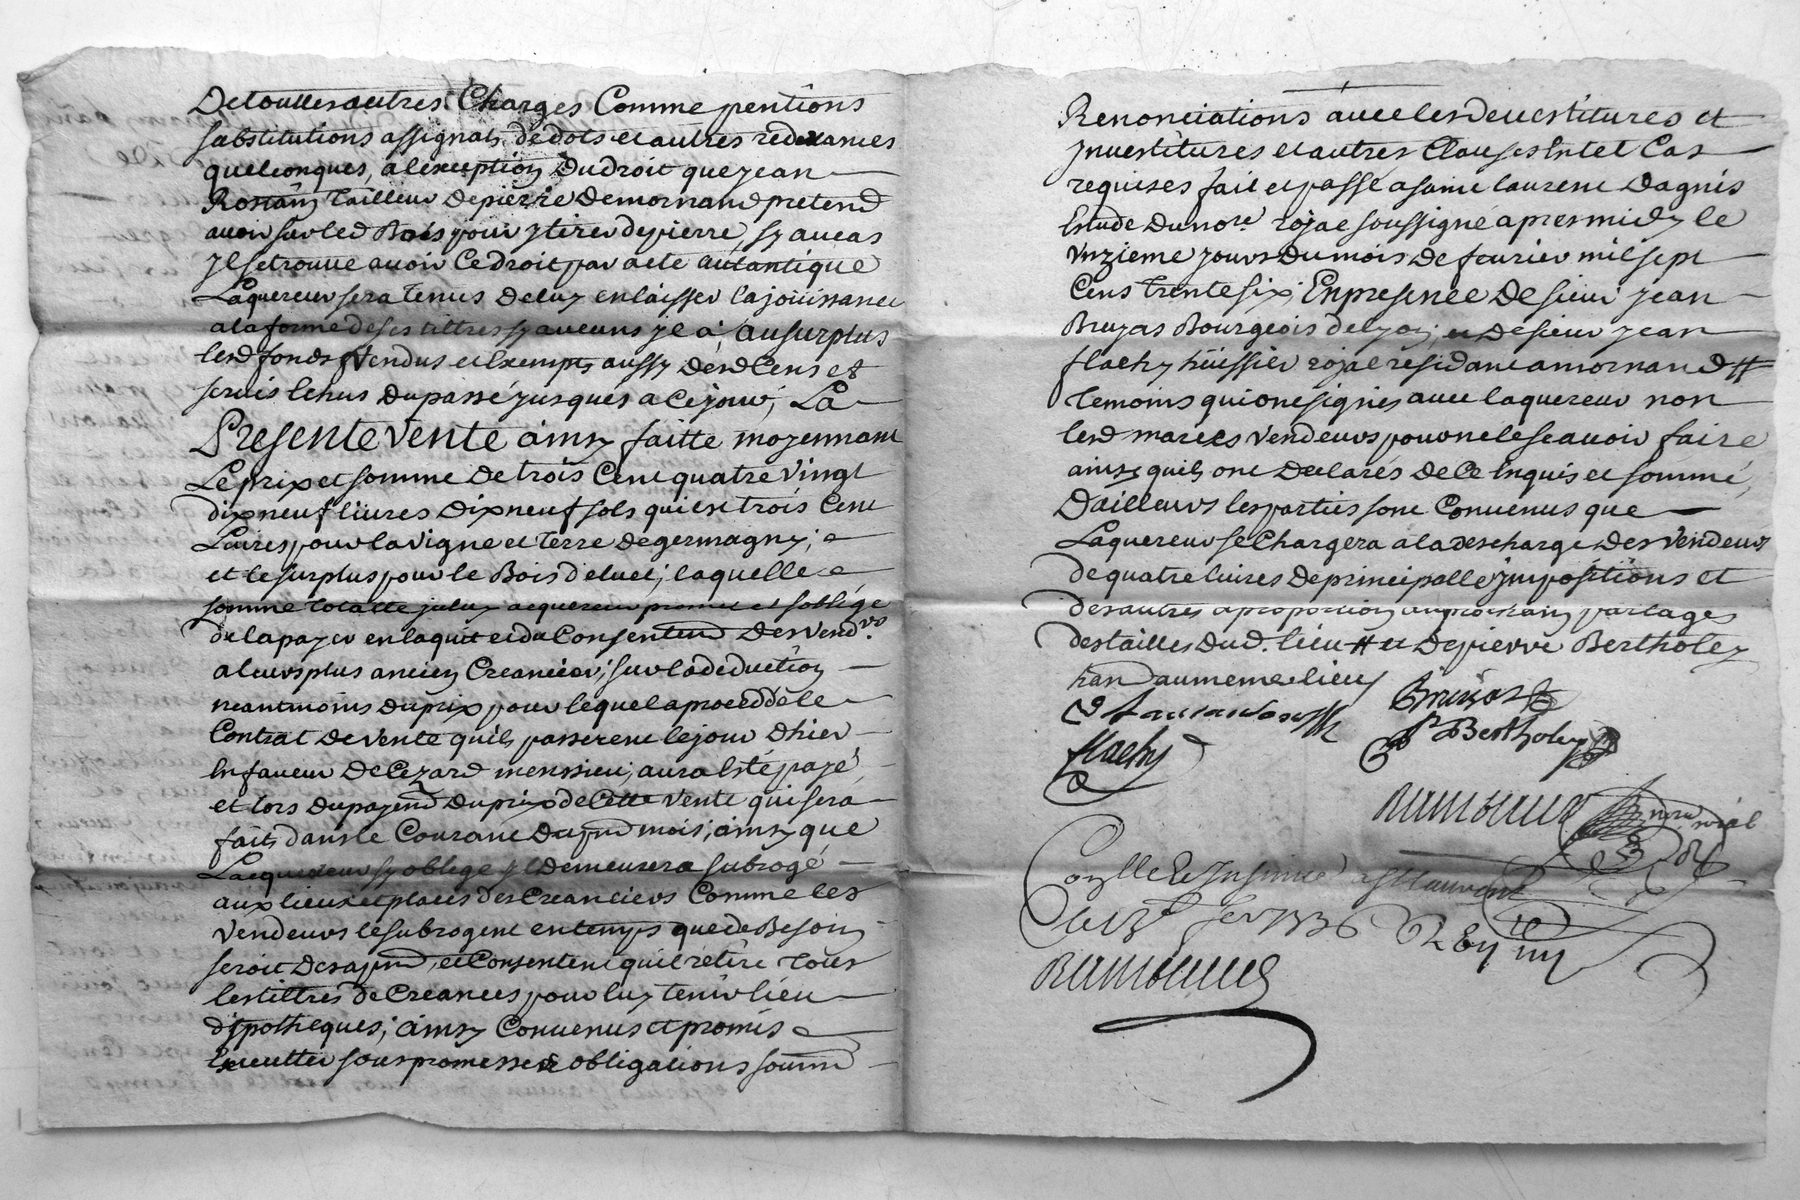 De touttes autres Charges Comme pentions
substitutions assignats de dots et autres redevances
quelconques, a lexception Du droit que jean
Rostain tailleur De pierre De mornand pretend
avoir sur led Bois pour y tirer de pierre, sy au cas
yl se trouve avoir Ce droit par acte autantique
Laquereur sera Tenus De luy en laisser la joüissance
a la forme de ses tiltres sy aucuns yl a; au surplus
lesd fonds vendus et Exempts aussy Desd Cens et
servis Echus Du passé jusques a Ce jour; La
Presente vente ainsy faitte moyennant
Le prix et somme De trois Cent quatre vingt
dix neuf livres Dix neuf sols qui est trois Cent
Livres pour la vigne et terre De germagny;
et le surplus pour le Bois d'eluet; laquelle
somme totalle jceluy acquereur promet et soblige
de la payer en laquit et du Consentemd Des vendrs
a leurs plus ancien Creancier; sur la deduction
neantmoins Du prix pour lequel a procedde le
Contrat De vente quils passerent le jour Dhier
En faveur De Cezard menssieu; aura Esté payé,
et lors Du payemd Du prix de Cette vente qui sera
fait dans le Courant Du pnd mois; ainsy que
Lacquereur sy oblege yl Demeurera subrogé
aux lieux et places des Creanciers Comme les
vendeurs le subrogent en temps que de Besoin
seroit Des a pnd, et Consentent quil retire tous
les tiltres de Creances pour luy tenir lieu
d'ypotheques; ainsy Convenus et promis
Executter sous promesses obligations soumd
Renonciations avec les Devestitures et
jnvestitures et autres Clauses En tel Cas
requises fait et passé a saint laurent Dagnis
Estude Du nore royal soussigné apres midy le
vnzieme jours Du mois De fevrier mil sept
Cens Trente six; En presence De sieur jean
Bruyas Bourgeois de lyon; et De sieur jean
flachy hüissier royal residant a mornand #
temoins qui ont signés avec laquereur non
lesd mariés vendeurs pour ne le scavoir faire
ainsy quils ont Declarés De Ce Enquis et sommé,
D'ailleurs les parties sont Convenus que
Laquereur se Chargera a la descharge Des vendeurs
de quatre livres De principalle jmpositions et
des autres a proportion au prochain partages
des tailles Dud. lieu # et De pierre Bertholey
hand au meme lieu
Bruyas
P Bertholey
flachy